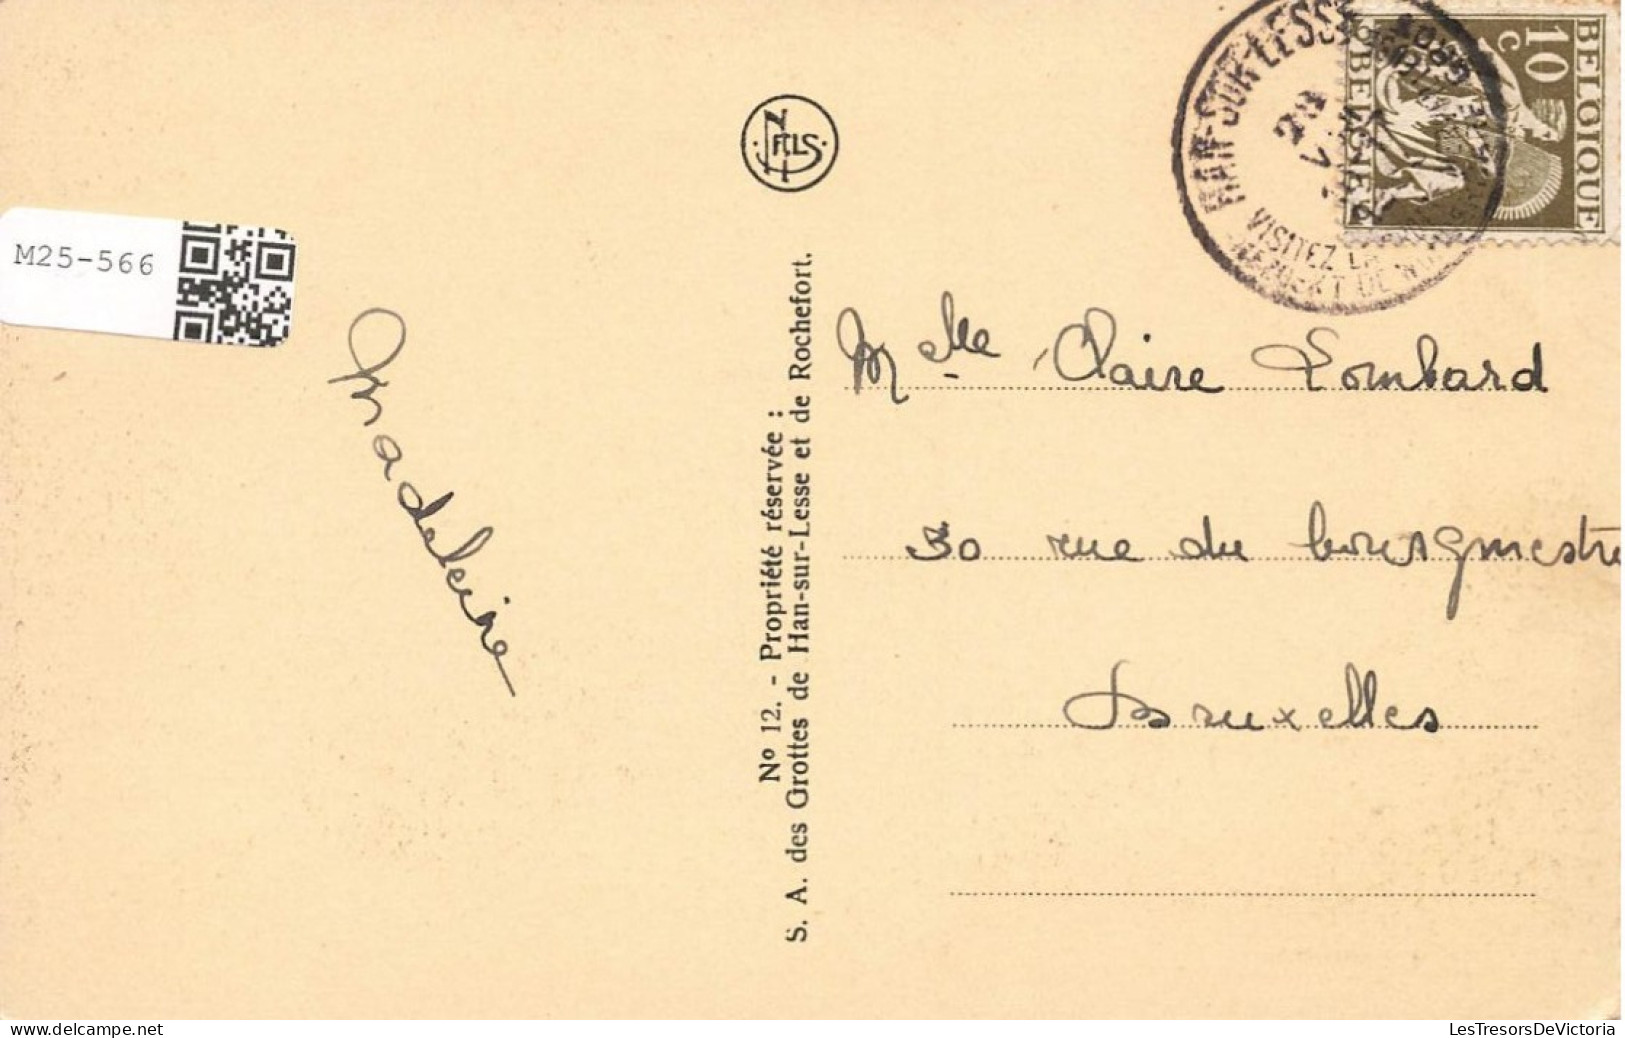 M25-566
HAN-SUR-LESSE
28
VISITEZ LA
BELGIQUE
10 c
Madeleine
Nº 12. - Propriété réservée :
S. A. des Grottes de Han-sur-Lesse et de Rochefort.
Mlle Claire Lombard
30 rue du bourgmestre
Bruxelles
LesTresorsDeVictoria - delcampe.net